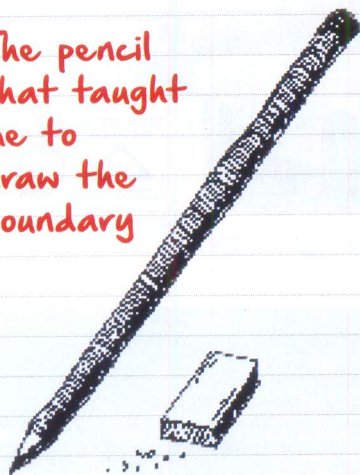 he pencil
hat taught
e to
raw the
oundary